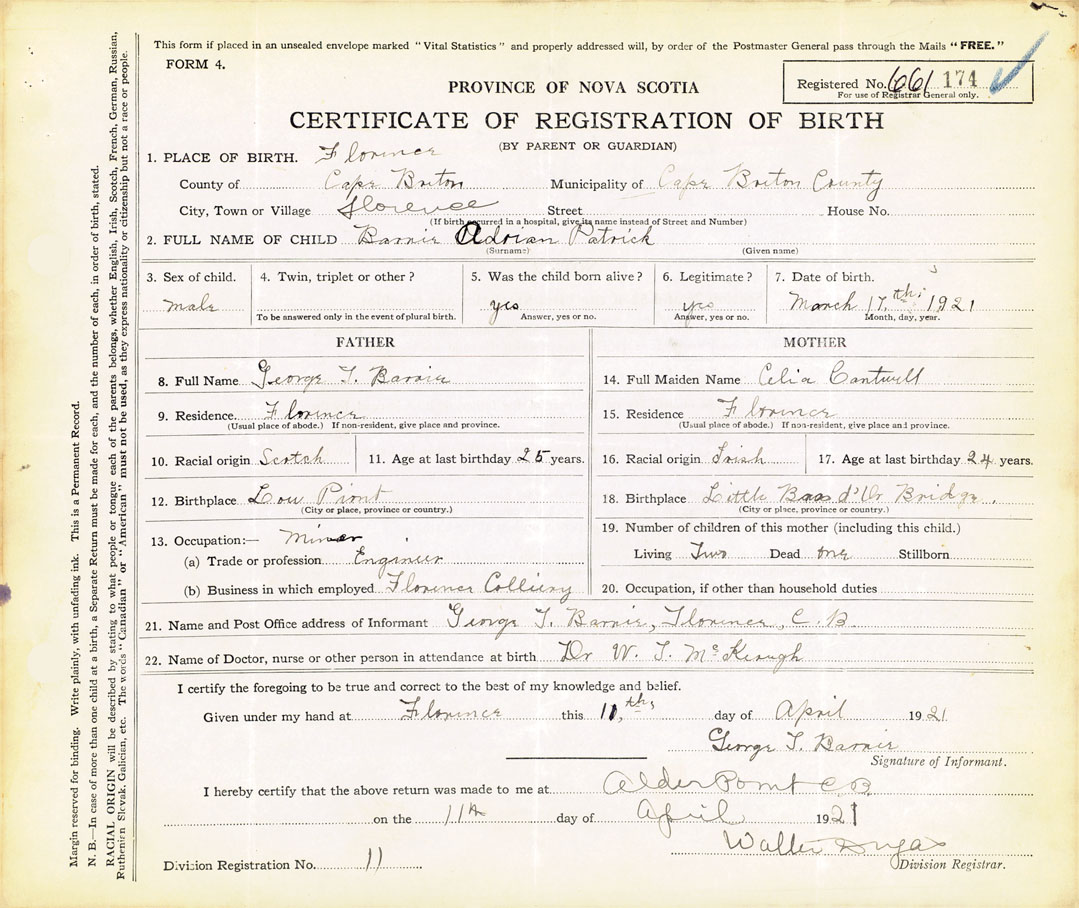 This form if placed in an unsealed envelope marked "Vital Statistics" and properly addressed will, by order of the Postmaster General pass through the Mails "FREE."
FORM 4.
Registered No. 661 174
For use of Registrar General only.
PROVINCE OF NOVA SCOTIA
CERTIFICATE OF REGISTRATION OF BIRTH
(BY PARENT OR GUARDIAN)
1. PLACE OF BIRTH. Florence
County of Cape Breton Municipality of Cape Breton County
City, Town or Village Florence Street House No.
(If birth occurred in a hospital, give its name instead of Street and Number)
2. FULL NAME OF CHILD Barrie Adrian Patrick
(Surname) (Given name)
3. Sex of child. 4. Twin, triplet or other? 5. Was the child born alive? 6. Legitimate? 7. Date of birth.
male yes yes March 17,th, 1921
To be answered only in the event of plural birth. Answer, yes or no. Answer, yes or no. Month, day, year.
FATHER MOTHER
8. Full Name George T. Barrie 14. Full Maiden Name Celia Cantwell
9. Residence. Florence 15. Residence Florence
(Usual place of abode.) If non-resident, give place and province. (Usual place of abode.) If non-resident, give place and province.
10. Racial origin Scotch 11. Age at last birthday 25 years. 16. Racial origin Irish 17. Age at last birthday 24 years.
12. Birthplace Low Piont 18. Birthplace Little Bras d'Or Bridge.
(City or place, province or country.) (City or place, province or country.)
13. Occupation:— Miner 19. Number of children of this mother (including this child.)
(a) Trade or profession Engineer Living Two Dead one Stillborn
(b) Business in which employed Florence Colliery 20. Occupation, if other than household duties
21. Name and Post Office address of Informant George T. Barrie, Florence, C.B.
22. Name of Doctor, nurse or other person in attendance at birth Dr W. T. McKeough
I certify the foregoing to be true and correct to the best of my knowledge and belief.
Given under my hand at Florence this 11,th, day of April 1921
George T. Barrie
Signature of Informant.
I hereby certify that the above return was made to me at Alder Point C B
on the 11th day of April 1921
Walter
Division Registrar.
Division Registration No. 11
Margin reserved for binding. Write plainly, with unfading ink. This is a Permanent Record.
N. B.—In case of more than one child at a birth, a Separate Return must be made for each, and the number of each, in order of birth, stated.
RACIAL ORIGIN will be described by stating to what people or tongue each of the parents belongs, whether English, Irish, Scotch, French, German, Russian,
Ruthenian, Slovak, Galician, etc. The words "Canadian" or "American" must not be used, as they express nationality or citizenship but not a race or people.